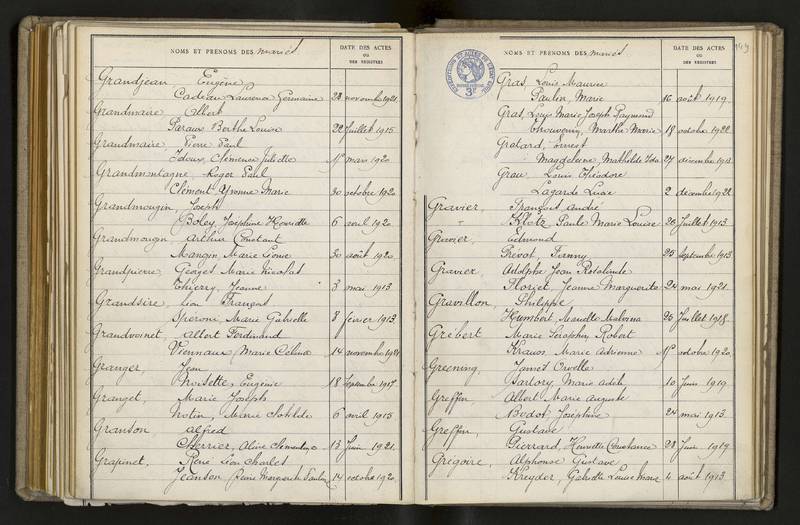 NOMS ET PRÉNOMS DES mariés
DATE DES ACTES
OU
DES REGISTRES
Grandjean Eugène
Cadeau Laurence Germaine 22 novembre 1921
Grandmaire Albert
Paraux Berthe Louise 22 Juillet 1915
Grandmaire Pierre Paul
Idoux, Clémence Juliette 1er mars 1920
Grandmontagne Roger Paul
Clément Yvonne Marie 30 octobre 1920
Grandmougin Joseph
Boley, Joséphine Henriette 6 avril 1920
Grandmougin, Arthur Constant
Mangin, Marie Louise 30 août 1920
Grandpierre Georges Marie Nicolas
Thierry, Jeanne 3 mai 1913
Grandsire Léon François
Speroni Marie Gabrielle 8 février 1913
Grandvoinet, Albert Ferdinand
Viennaux, Marie Célina 14 novembre 1921
Granger, Jean
Noisette, Eugénie 18 Septembre 1917
Granget, Marie Joseph
Marie Clotilde 6 avril 1915
Granson Alfred
Cherrier, Aline Clémentine 13 Juin 1921
Grapinet, René Léon Charles
Jeanson, Marguerite 14 octobre 1920
NOMS ET PRÉNOMS DES mariés
DATE DES ACTES
OU
DES REGISTRES
149
3F
Gras, Louis Maurice
Paulin, Marie 16 août 1919
Gras, Louis Marie Joseph Raymond
Thouvenin, Marthe Marie 18 octobre 1922
Gratard, Ernest
Magdeleine, Mathilde Ida 24 décembre 1913
Grau, Louis Théodore
Lagarde Lucie 2 décembre 1922
Gravier, François André
Klotz, Paule Marie Louise 26 Juillet 1913
Gravier, Edmond
Prévot, Fanny 25 Septembre 1913
Gravier, Adolphe Jean
Florzet, Jeanne Marguerite 24 mai 1921
Gravillon, Philippe
Humbert, Maudte 26 Juillet 1918
Grébert Marie Séraphin Robert
Kraus Marie Adrienne 1er octobre 1920
Greening, James Orvelle
Sartory, Marie Adèle 10 Juin 1919
Greffin, Albert Marie Auguste
Bodot, Joséphine 24 mai 1913
Greffin, Gustave
Pierrard, Henriette Constance 28 Juin 1919
Grégoire, Alphonse Gustave
Kreyder, Gabrielle Louise Marie 4 août 1913